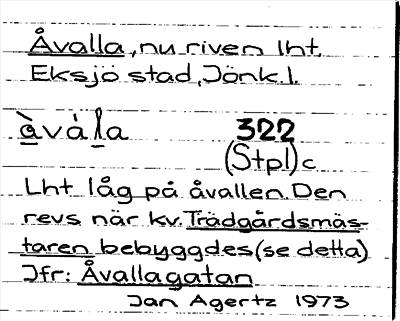 Åvalla, nu riven lht,
Eksjö stad, Jönk.l.
àvála 322
(Stpl)c
Lht låg på åvallen. Den
revs när kv. Trädgårdsmäs-
taren bebyggdes (se detta)
Jfr: Åvallagatan
Jan Agertz 1973